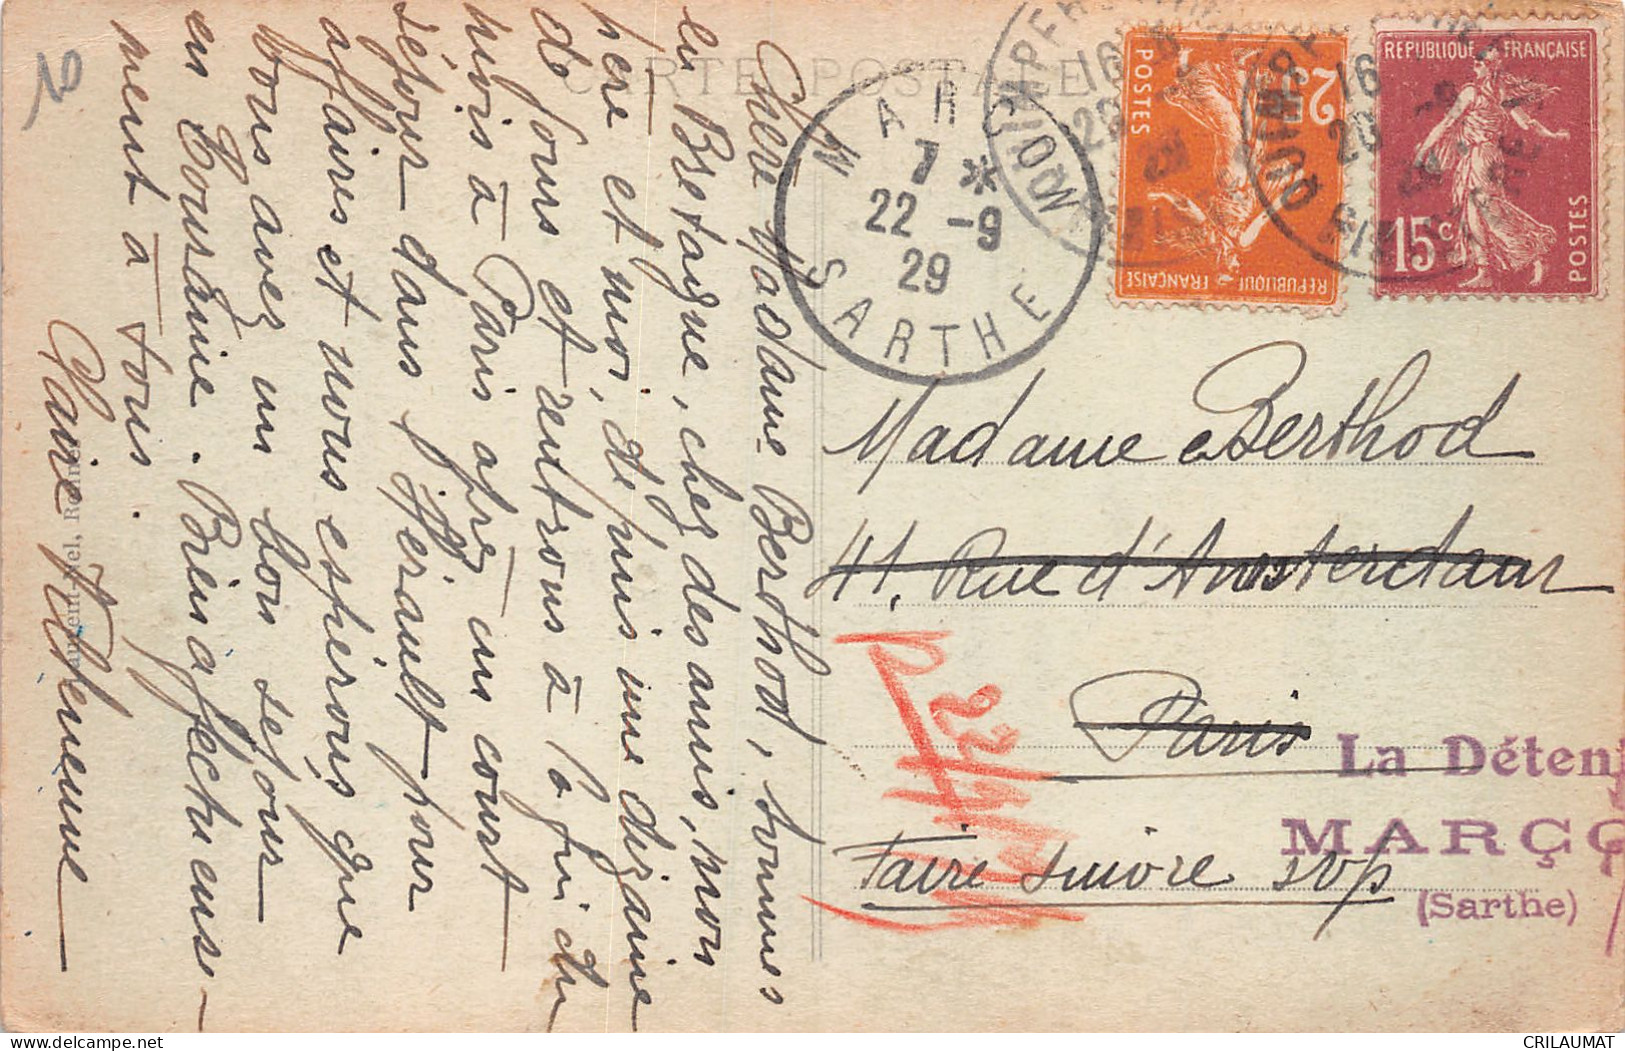 CARTE POSTALE
Chère Madame Berthod, sommes
en Bretagne, chez des amis, mon
père et moi, depuis une dizaine
de jours et rentrons à la fin du
mois à Paris après un court
séjour dans l'Hérault pour
affaires et nous espérons que
vous avez un bon séjour
en Touraine. Bien affectueuse-
ment à tous.
10
MAR
7 *
22 -9
29
SARTHE
QUIMPER
16
QUIMPER
16
FINISTERE
2c
POSTES
REPUBLIQUE FRANÇAISE
REPUBLIQUE FRANÇAISE
15c
POSTES
Madame Berthod
41, Rue d'Amsterdam
Paris
La Déten
MARÇ
(Sarthe)
Faire suivre svp
22/9
CRILAUMAT